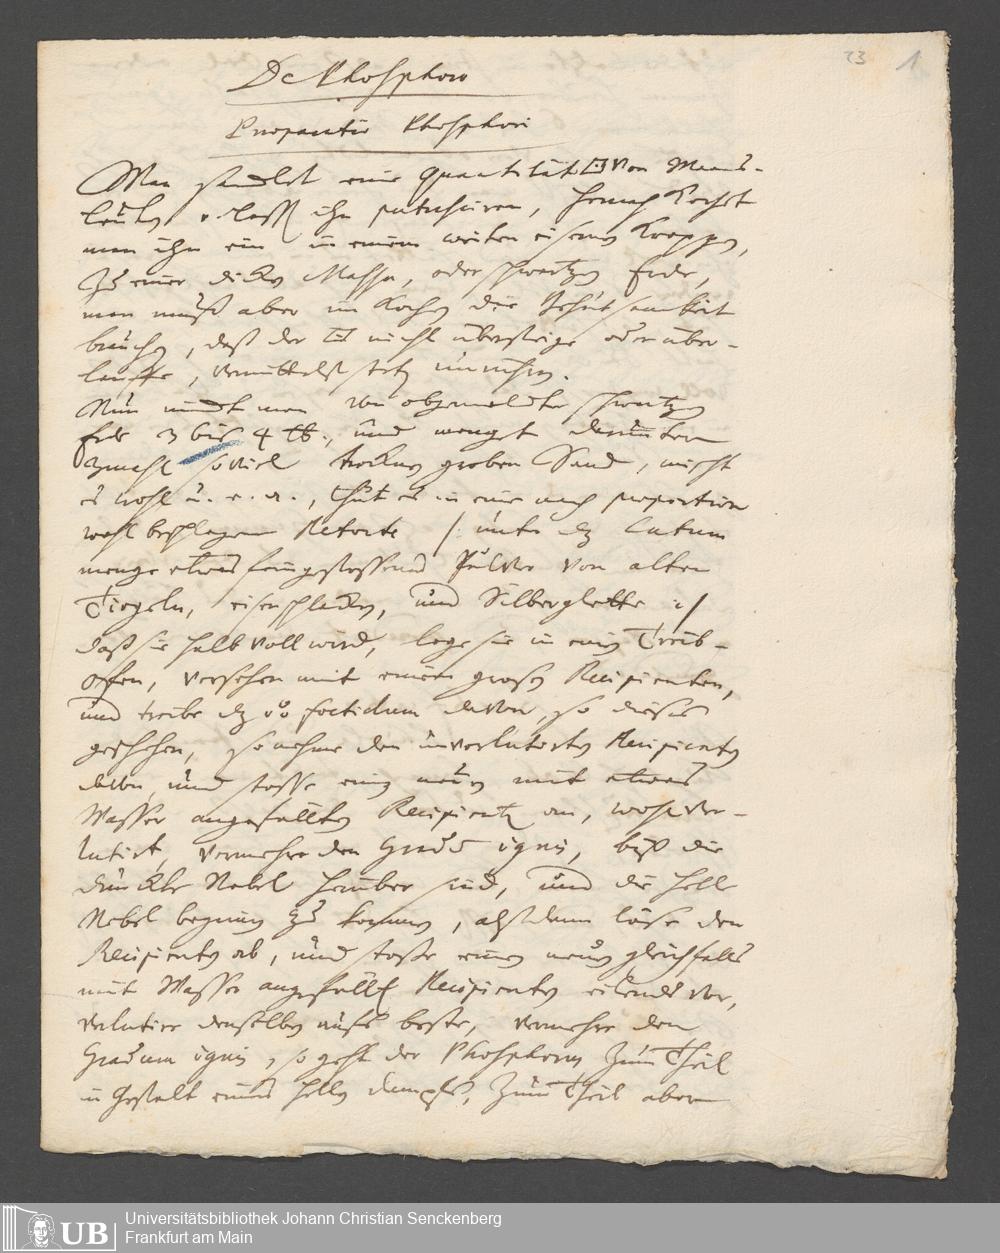 23 1
De Phosphoro
Praeparatio Phosphori
Man samlet eine Quantität □ von Manns-
leuten u. lasst ihn putrificiren, hernach kochet
man ihn ein in einem weiten eisernen Kroppen,
zu einer dicken Massa, oder schwartzen Erde,
man muß aber im Kochen die Behutsamkeit
brauchen, daß der □ nicht übersteige oder über-
lauffe, vermittelst stetem umrühren.
Nun nimbt man von obgemeldter schwartzen
Erde 3 bis 4 lb., und menget darunter
2mahl soviel trocknen groben Sand, mischt
es wohl u. e. a., thut es in eine nach proportion
wohl beschlagene Retorte /: unter das Lutum
menge etwas feingestossenes Pulver von alten
Tiegeln, eisenschlacken, und Silberglette :/
daß sie halb voll wird, lege sie in einen Treib-
offen, versehen mit einem großen Recipienten,
und treibe das foetidum davon, so dieses
geschehen, so nehme den unverlutirten Recipienten
davon, und stosse einen neuen mit etwas
Wasser angefüllten Recipienten an, wohl ver-
lutirt, vermehre den Gradus ignis, biß die
dunckle Nebel herüber sind, und die helle
Nebel beginnen zu kommen, alßdann löse den
Recipienten ab, und stosse einen neuen gleichfalls
mit Wasser angefüllt Recipienten eilends vor,
verlutire denselben aufs beste, vermehre den
Gradum ignis, so geht der Phosphorus zum Theil
in Gestalt eines hellen dampfes, zum Theil aber
UB
Universitätsbibliothek Johann Christian Senckenberg
Frankfurt am Main